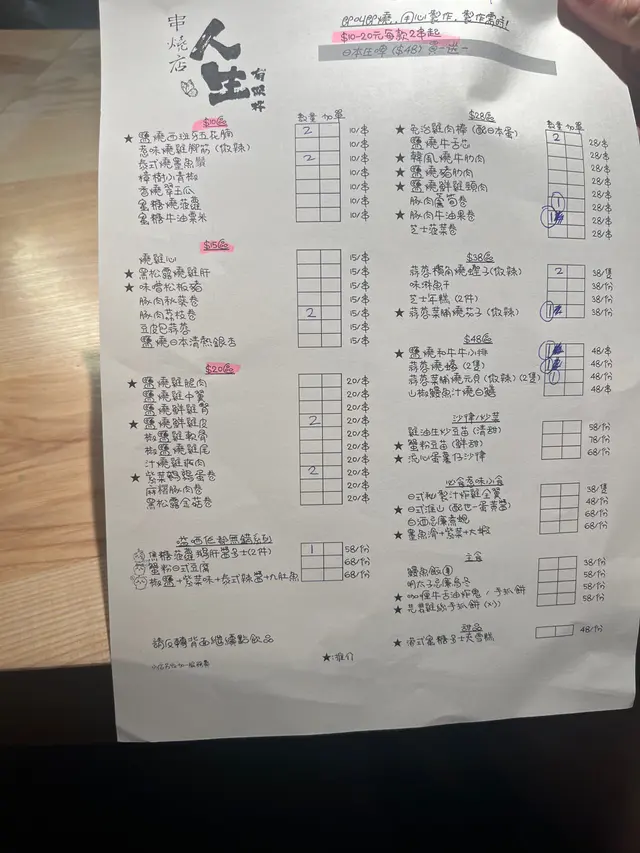 串燒店
人生
有限杯
即叫即燒，用心製作，製作需時!
$10-20元每款2串起
日本生啤 ($48) 買一送一
$10區
數量 加單
★ 鹽燒西班牙五花腩 2 10/串
惹味燒雞腳筋 (微辣) 10/串
泰式燒墨魚鬚 2 10/串
樟樹小青椒 10/串
香燒翠玉瓜 10/串
蜜糖燒菠蘿 10/串
蜜糖牛油粟米 10/串
$15區
燒雞心 15/串
★ 黑松露燒雞肝 15/串
★ 味噌松板豬 15/串
豚肉秋葵卷 15/串
豚肉荔枝卷 2 15/串
豆皮包蒜蓉 15/串
鹽燒日本清熱銀杏 15/串
$20區
★ 鹽燒雞腿肉 20/串
鹽燒雞中翼 20/串
鹽燒鮮雞腎 20/串
★ 鹽燒鮮雞皮 2 20/串
椒鹽雞軟骨 20/串
椒鹽雞尾 20/串
汁燒雞㿭肉 20/串
★ 紫菜鵪鶉蛋卷 2 20/串
麻糬豚肉卷 20/串
黑松露金菇卷 20/串
焦糖菠蘿鵝肝醬多士(2件) 1 58/份
蟹粉日式豆腐 68/份
椒鹽+紫菜味+泰式辣醬+九肚魚 68/份
請反轉背面繼續點飲品
★:推介
$28區
數量 加單
★ 免治雞肉棒 (配日本蛋) 2 28/串
鹽燒牛舌芯 28/串
★ 韓風燒牛肋肉 28/串
★ 鹽燒豬肋肉 28/串
★ 鹽燒鮮雞頸肉 28/串
豚肉蘆筍卷 1 28/串
★ 豚肉牛油果卷 1 28/串
芝士菠菜卷 28/串
$38區
蒜蓉欖角燒蟶子(微辣) 2 38/隻
味淋魚干 38/份
芝士年糕 (2件) 38/份
★ 蒜蓉菜脯燒茄子 (微辣) 1 38/份
$48區
★ 鹽燒和牛牛小排 1 48/串
蒜蓉燒蠔 (2隻) 1 48/份
蒜蓉菜脯燒元貝 (微辣) (2隻) 1 48/份
山椒鰻魚汁燒白鱔 48/串
沙律/炒菜
雞油生炒豆苗 (清甜) 58/份
★ 蟹粉豆苗 (鮮甜) 78/份
★ 流心蛋薯仔沙律 68/份
必食惹味小食
日式秘製汁炸雞全翼 38/隻
★ 日式淮山 (配他一蛋黃醬) 48/份
白酒忌廉煮蜆 68/份
★ 墨魚滑+紫菜+大蝦 68/份
主食
鰻魚飯 38/份
明太子忌廉烏冬 58/份
★ 咖喱牛舌油炸鬼 / 手抓餅 58/份
★ 58/份
甜品
★ 港式蜜糖多士夾雪糕 48/份